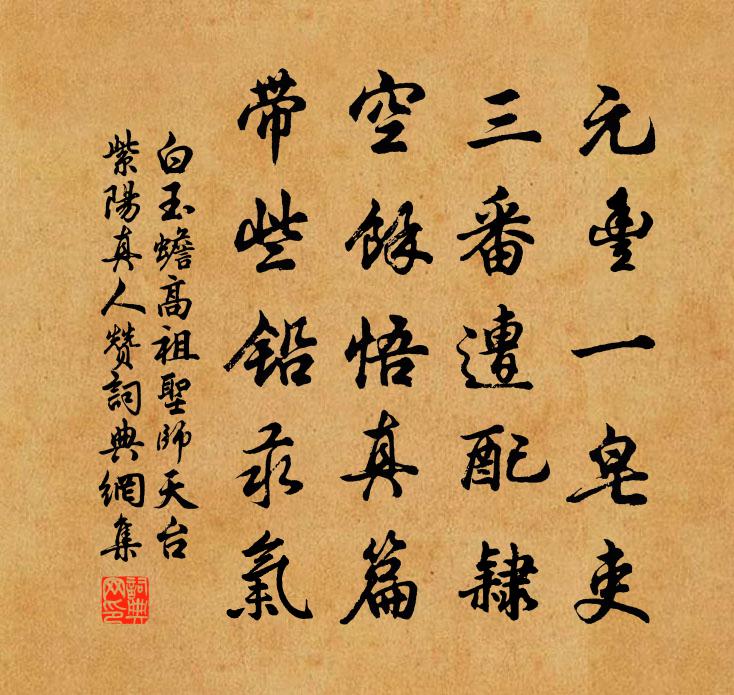 元豐一皂吏
三番遭配隸
空餘悟真篇
帶些鉛汞氣
白玉蟾高祖聖師天台
紫陽真人贊詞典網集
詞典
网印